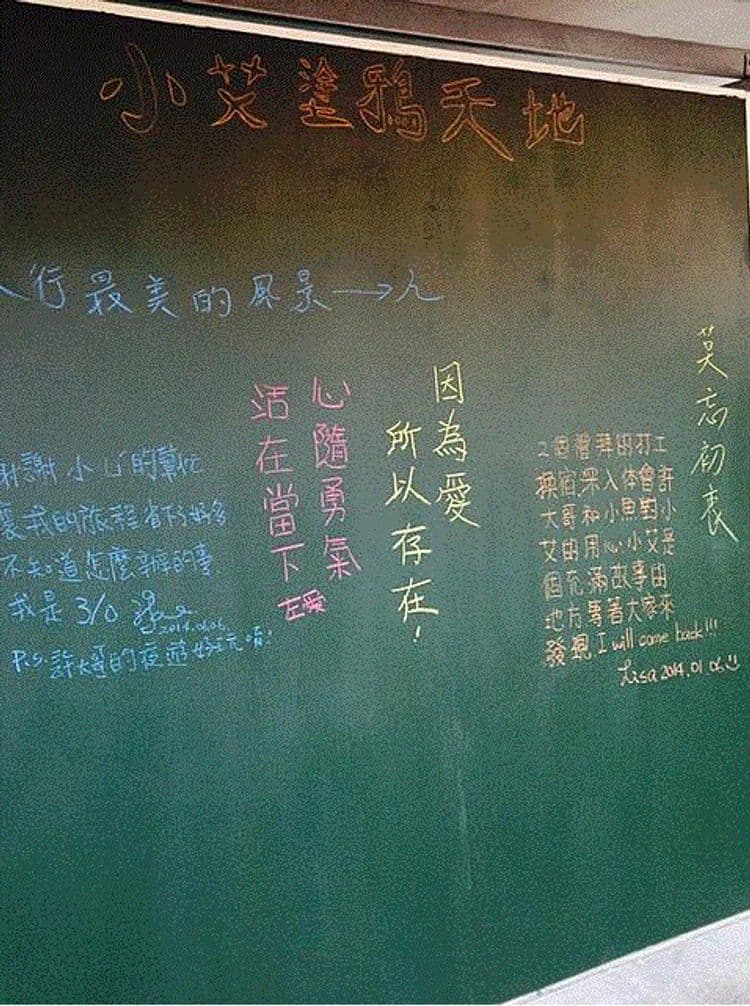 小艾塗鴉天地
行最美的風景→人
謝謝小山的幫忙
我的旅程省了好多
不知道怎麼辦的事
我是 3/0
2014.06.06
P.S. 許大哥的夜遊好玩唷!
心隨勇氣
活在當下
左愛
因為愛
所以存在!
莫忘初衷
2個禮拜的打工
換宿深入体會許
大哥和小魚對小
艾的用心小艾是
個充滿故事的
地方等著大家來
發現 I will come back!!!
Lisa 2014.01.06